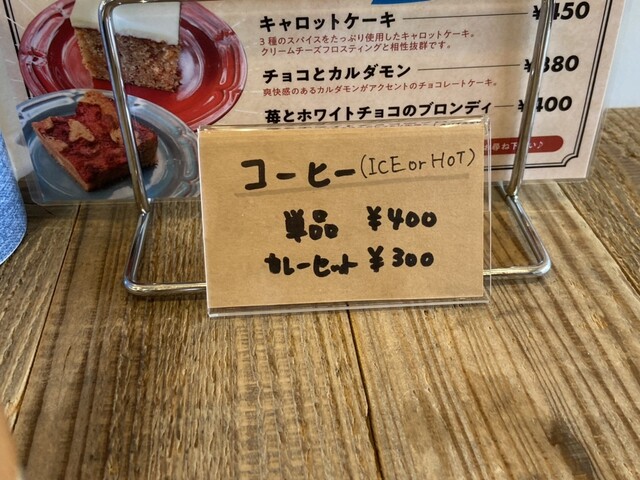 キャロットケーキ ¥450
3種のスパイスをたっぷり使用したキャロットケーキ。
クリームチーズフロスティングと相性抜群です。
チョコとカルダモン ¥380
爽快感のあるカルダモンがアクセントのチョコレートケーキ。
苺とホワイトチョコのブロンディ ¥400
尋ね下さい♪
コーヒー(ICE or HOT)
単品 ¥400
カレーセット ¥300